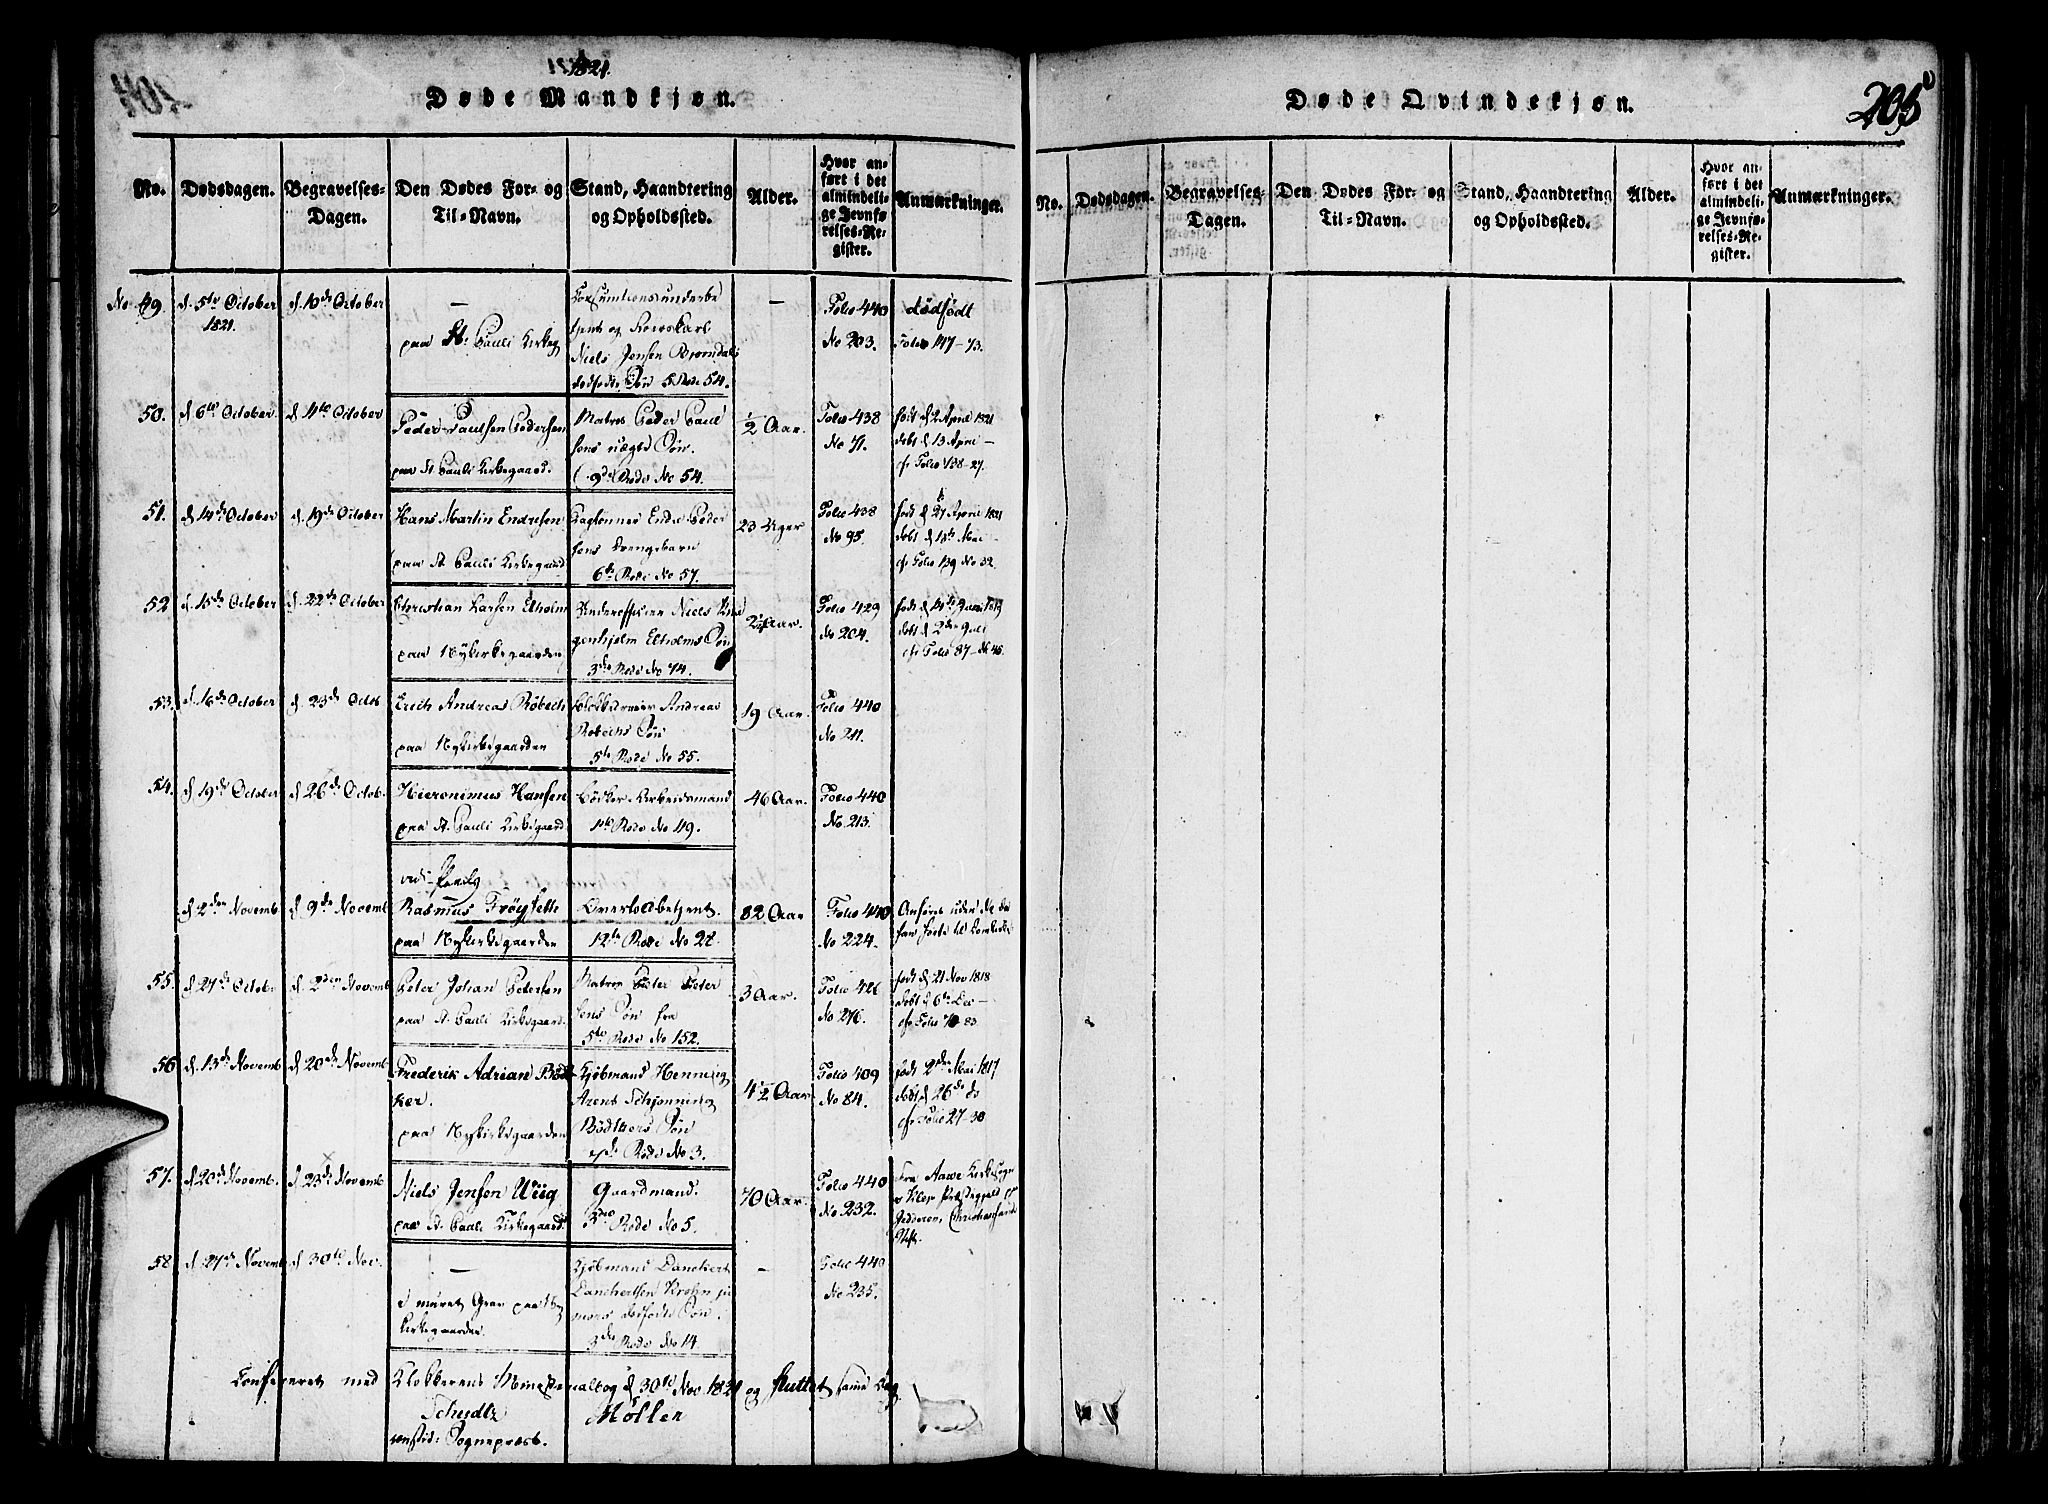 1821.
Døde Mandkjøn.
No.
Dødsdagen.
Begravelses-
Dagen.
Den Dødes For- og
Til-Navn.
Stand, Haandtering
og Opholdssted.
Alder.
Hvor an-
ført i det
almindeli-
ge Jevnfø-
relses-Re-
gister.
Anmærkninger.
No 49. d. 5te October 1821. d. 10de October
—
paa St. Pauli Kirkeg
Niels Jensen
dødfødte Søn 5 Rode 54.
—
Folio 440
No 203.
dødfødt
Folio 147-73.
50. d 6te October d 11te October
Peder Paulsen Pedersen
paa St Pauli Kirkegaard.
Matros Peder Paul
sens ægte Søn.
9de Rode No 54.
½ Aar.
Folio 438
No 71.
født d 2 April 1821
døbt d 13 April —
cfr Folio 138-27.
51. d 14de October d. 19de October
Hans Martin Endresen
paa St Pauli Kirkegaard
Endre Peder
sens Drengebarn
6te Rode No 57.
23 Uger
Folio 438
No 95.
født d 27 April 1821
døbt d 18de Mai —
cfr Folio 139 No 32.
52 d. 15de October d. 22de October
Christian Larsen Elholm
paa Nykirkegaarden
Underofficeer Niels
Elholms Søn
3de Rode No 74.
Folio 429
No 204.
døbt d 2den Juli
cfr Folio 87-No 46.
53. d. 16de October d 23de Octob
Erich Andreas Robech
paa Nykirkegaarden
Andreas
Robechs Søn
5te Rode No 55.
19 Aar.
Folio 440
No 211.
54. d 19de October d 26de Octob.
Hieronimus Hansen
paa St. Pauli Kirkegaard
Bødker-Arbeidsmand
1ste Rode No 49.
46 Aar.
Folio 440
No. 213.
d 2den Novemb d 9de Novemb
Rasmus Frøysette
paa Nykirkegaarden
Overtoldbetjent.
12te Rode No 22.
82 Aar
Folio 440
No 224.
Anføres uden No da
han hørte til Domkirken
55. d 27de Octob. d 2den Novemb
Peter Johan Petersen
paa St. Pauli Kirkegaard.
Matros Peter Peter
sens Søn fra
5te Rode No 152.
3 Aar.
Folio 426
No 276.
født d 21 Nov 1818
døbt d 6te Dec —
cfr Folio 70-83.
56 d. 13de Novemb d 20de Novemb
Frederik Adrian Bødt-
ker.
paa Nykirkegaarden
Kjøbmand Henning
Arent Schjønning
Bødtkers Søn
No 3.
4½ Aar
Folio 409
No 84.
født 2den Mai 1817
døbt d 26de do
cfr Folio 27-30
57. d 20de Novemb. d 23de Novemb
Niels Jensen Wiig
paa St. Pauli Kirkegaard.
Gaardmand.
3die Rode No 5.
70 Aar.
Folio 440
No 232.
fra Aawe Kirkesogn
Præstegjeld
Jedderen, Christiansands
Stift.
58. d. 27de Novemb d. 30te Nov.
—
i muret Grav paa Ny
Kirkegaarden.
Kjøbmand Danckert
Danchertsen Krohn ju
niors dødfødte Søn.
3die Rode No 14.
—
Folio 440
No 235.
Confereret med Klokkerens Ministerialbog d 30te Nov. 1821 og sluttet samme Dag
Scheidtz Møller
const: Sognepræst.
Døde Qvindekjøn.
205
No.
Dødsdagen.
Begravelses-
Dagen.
Den Dødes For- og
Til-Navn.
Stand, Haandtering
og Opholdssted.
Alder.
Hvor an-
ført i det
almindeli-
ge Jevnfø-
relses-Re-
gister.
Anmærkninger.